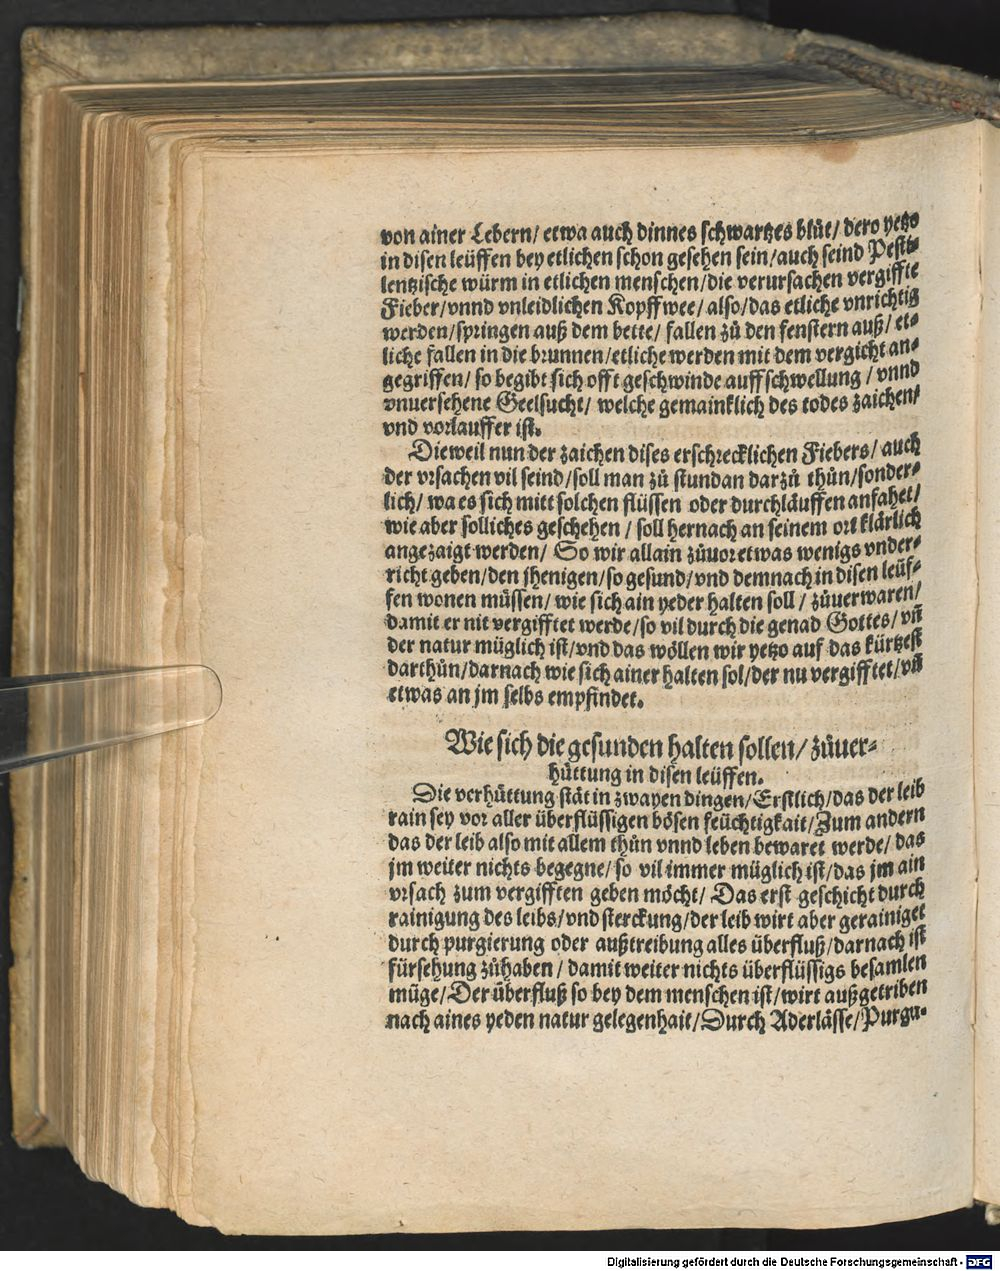 von ainer Lebern/ etwa auch dinnes schwartzes blůt/ dero yetzo
in disen leüffen bey etlichen schon gesehen sein/auch seind Pesti-
lentzische würm in etlichen menschen/die verursachen vergiffte
Fieber/vnnd vnleidlichen Kopffwee/ also/das etliche vnrichtig
werden/springen auß dem bette/ fallen zů den fenstern auß/ et-
liche fallen in die brunnen/etliche werden mit dem vergicht an-
gegriffen/ so begibt sich offt geschwinde auffschwellung / vnnd
vnuersehene Geelsucht/ welche gemainklich des todes zaichen/
vnd vorlauffer ist.
Dieweil nun der zaichen dises erschrecklichen Fiebers/ auch
der vrsachen vil seind/soll man zů stundan darzů thůn/sonder-
lich/ wa es sich mitt solchen flüssen oder durchläuffen anfahet/
wie aber solliches geschehen / soll hernach an seinem ort klärlich
angezaigt werden/ So wir allain zůuor etwas wenigs vnder-
richt geben/den jhenigen/so gesund/vnd demnach in disen leüf-
fen wonen müssen/ wie sich ain yeder halten soll / zůuerwaren/
damit er nit vergifftet werde/so vil durch die genad Gottes/ vñ
der natur müglich ist/vnd das wöllen wir yetzo auf das kürtzest
darthůn/darnach wie sich ainer halten sol/der nu vergifftet/vñ
etwas an jm selbs empfindet.
Wie sich die gesunden halten sollen/ zůuer-
hüttung in disen leüffen.
Die verhüttung stät in zwayen dingen/Erstlich/das der leib
rain sey vor aller überflüssigen bösen feüchtigkait/Zum andern
das der leib also mit allem thůn vnnd leben bewaret werde/ das
jm weiter nichts begegne/ so vil immer müglich ist/das jm ain
vrsach zum vergifften geben möcht/ Das erst geschicht durch
rainigung des leibs/vnd sterckung/der leib wirt aber gerainiget
durch purgierung oder außtreibung alles überfluß/darnach ist
fürsehung zůhaben / damit weiter nichts überflüssigs besamlen
müge/Der überfluß so bey dem menschen ist/wirt außgetriben
nach aines yeden natur gelegenhait/Durch Aderlässe/Purga-
Digitalisierung gefördert durch die Deutsche Forschungsgemeinschaft - DFG